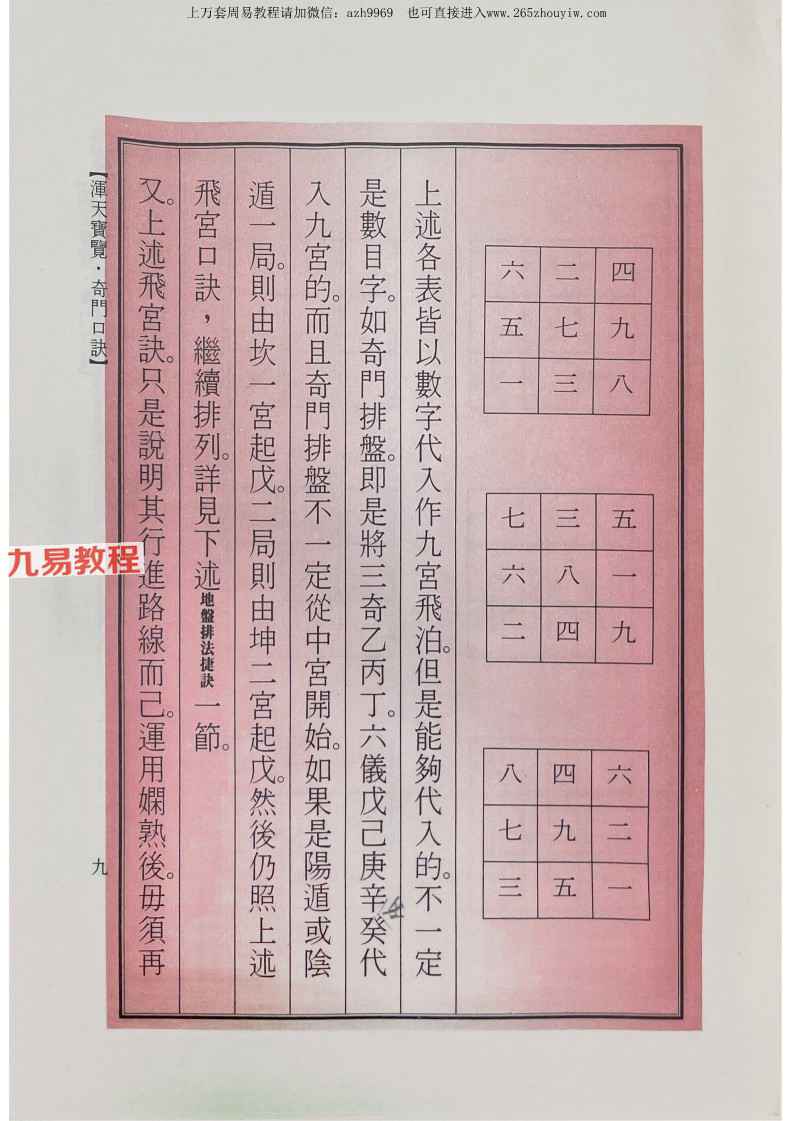 上万套周易教程请加微信：azh9969　也可直接进入www.265zhouyiw.com
六 二 四
五 七 九
一 三 八
七 三 五
六 八 一
二 四 九
八 四 六
七 九 二
三 五 一
上述各表皆以數字代入作九宮飛泊。但是能夠代入的。不一定
是數目字。如奇門排盤。即是將三奇乙丙丁。六儀戊己庚辛癸代
壬
入九宮的。而且奇門排盤不一定從中宮開始。如果是陽遁或陰
遁一局。則由坎一宮起戊。二局則由坤二宮起戊。然後仍照上述
飛宮口訣，繼續排列。詳見下述地盤排法捷訣一節。
又。上述飛宮訣。只是說明其行進路線而己。運用嫻熟後。毋須再
【渾天寶覽·奇門口訣】
九
九易教程